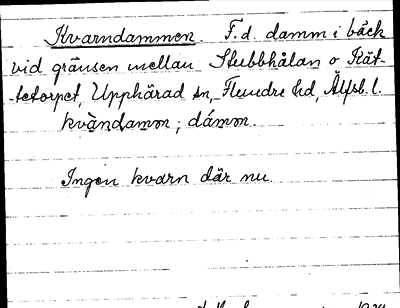 Kvarndammen. F.d. damm i bäck
vid gränsen mellan Stubbhålan o Rät-
-tetorpet, Upphärad sn, Flundre hd, Älfsb. l.
kvàndamon; dámon.
Ingen kvarn där nu.